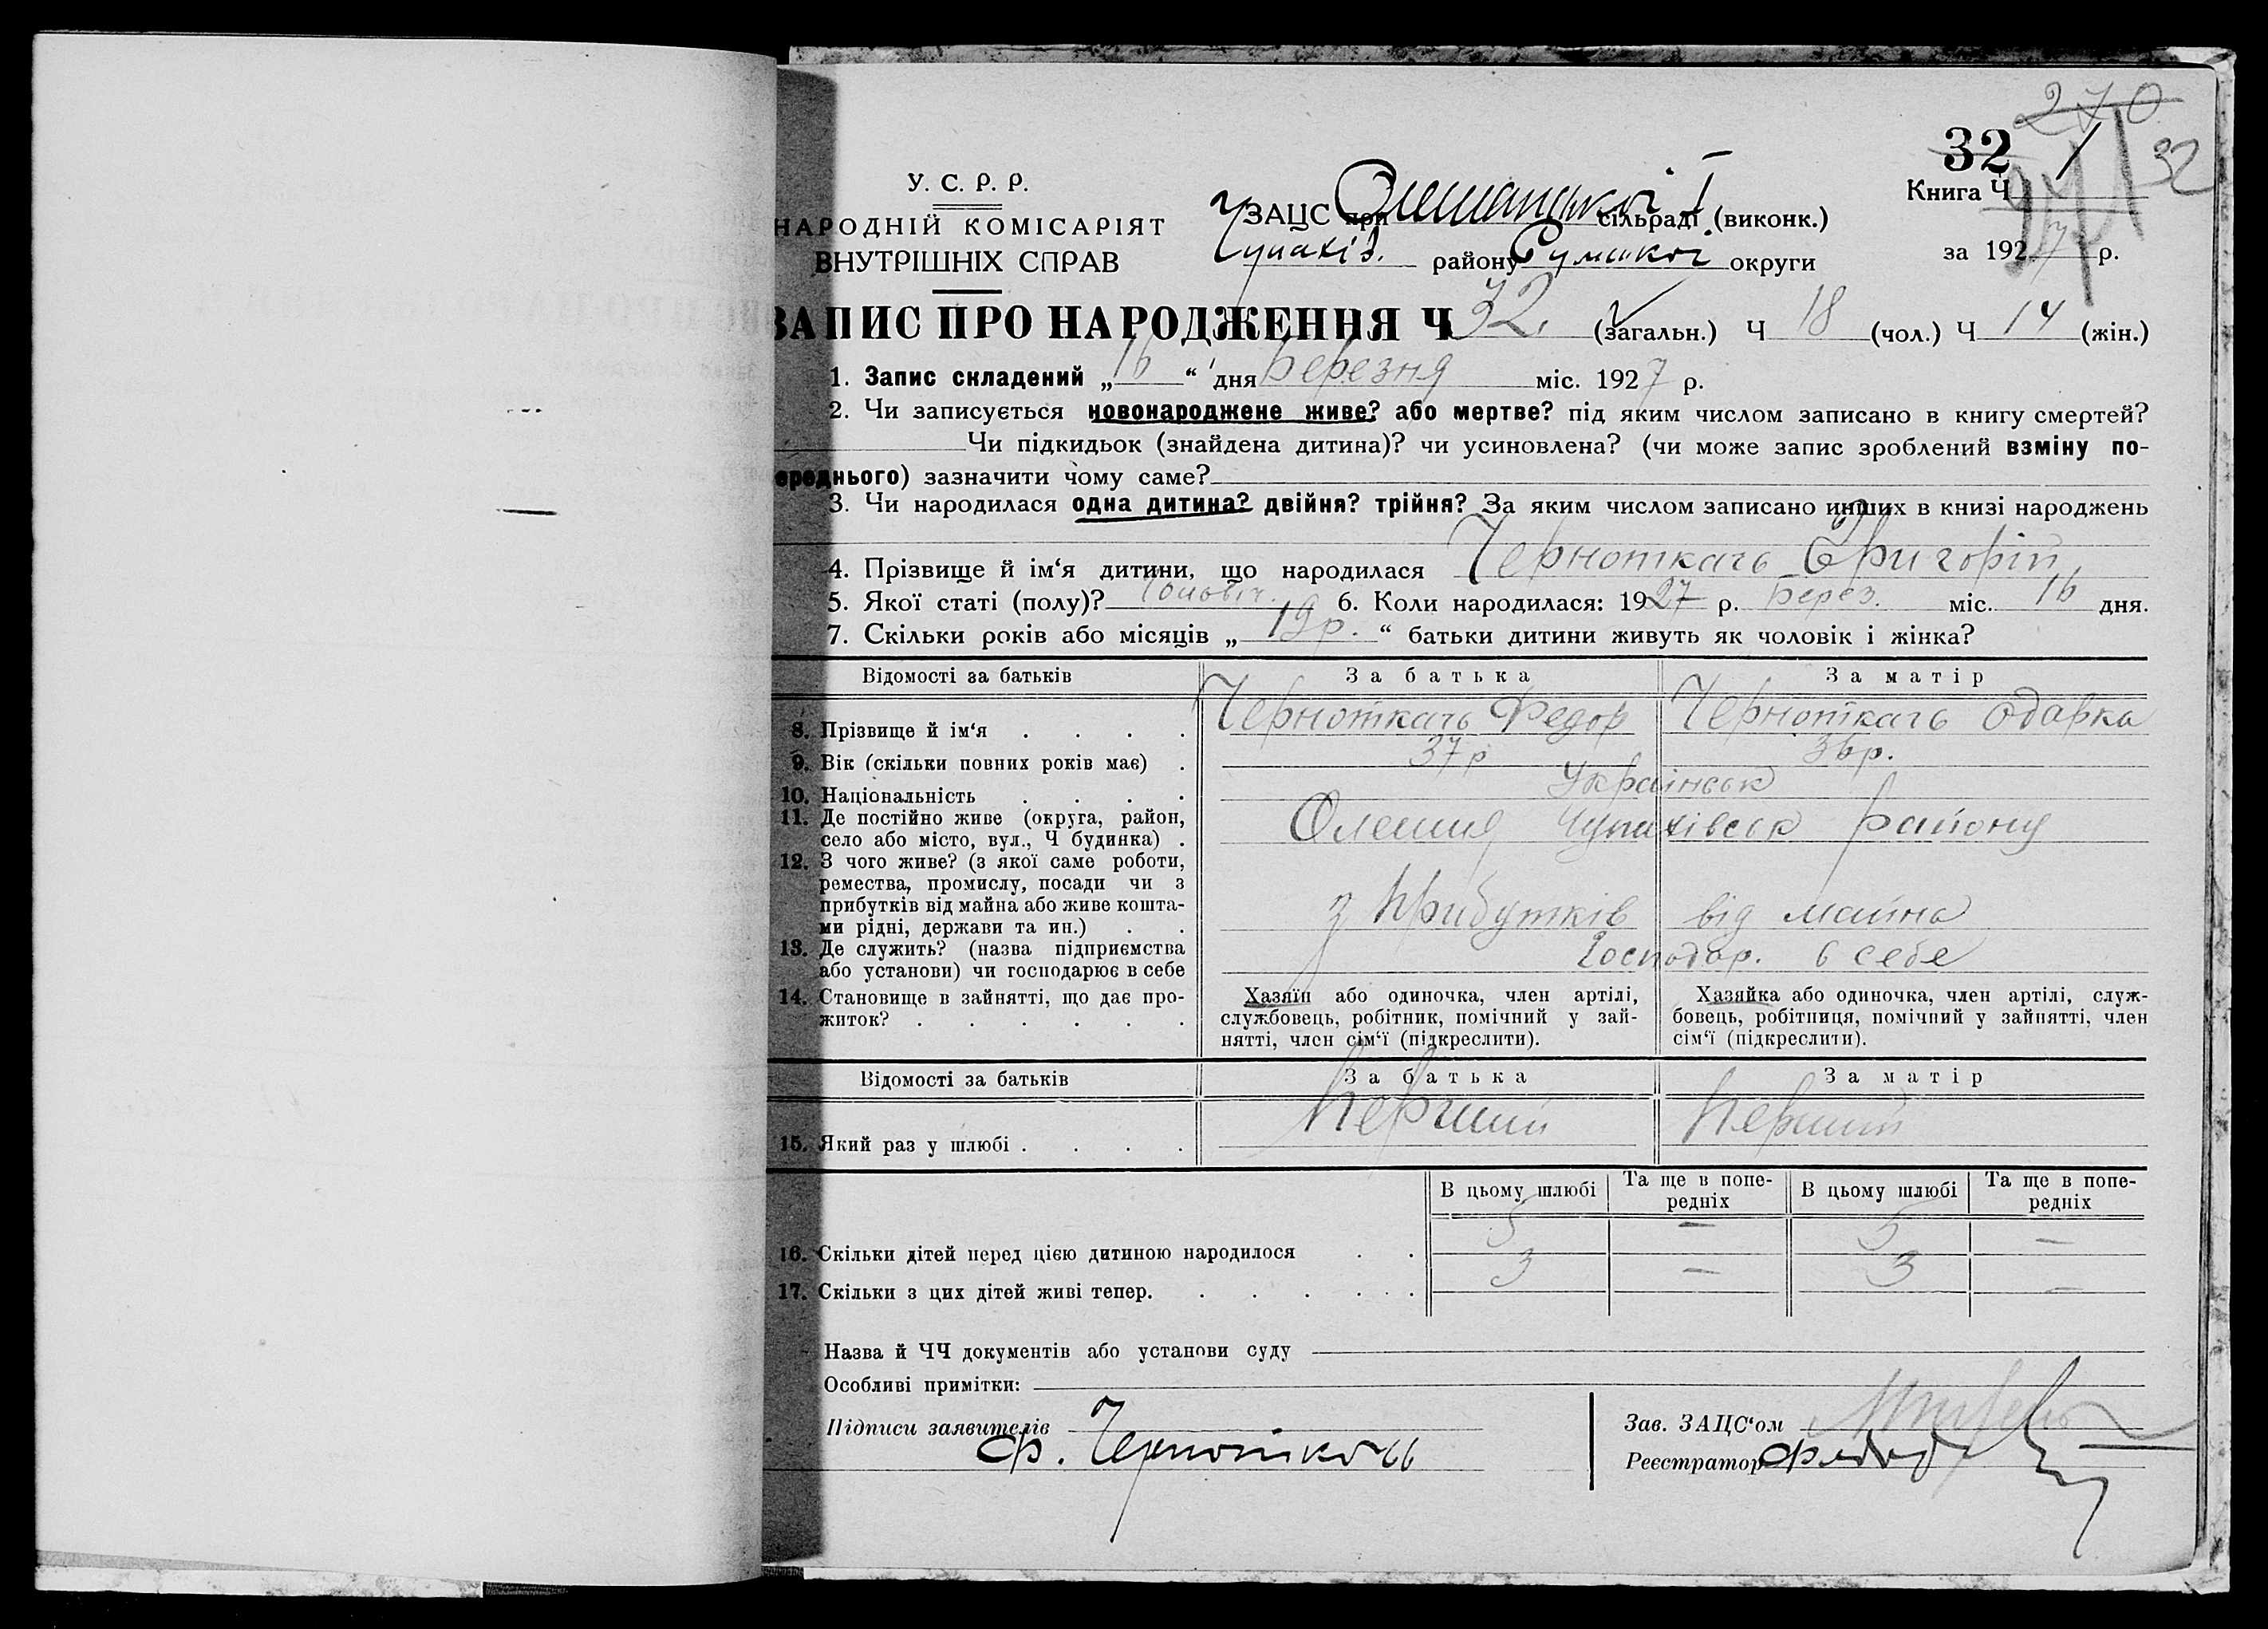 270
32 1 32
У. С. Р. Р.
Книга Ч
ЗАЦС при Олешанській І сільраді (виконк.)
НАРОДНІЙ КОМІСАРІЯТ
Чупахів. району Сумської округи
за 1927 р.
ВНУТРІШНІХ СПРАВ
ЗАПИС ПРО НАРОДЖЕННЯ Ч 32. (загальн.) Ч 18 (чол.) Ч 14 (жін.)
1. Запис складений „16“ дня Березня міс. 1927 р.
2. Чи записується новонароджене живе? або мертве? під яким числом записано в книгу смертей?
Чи підкидьок (знайдена дитина)? чи усиновлена? (чи може запис зроблений взміну по-
ереднього) зазначити чому саме?
3. Чи народилася одна дитина? двійня? трійня? За яким числом записано инших в книзі народжень
4. Прізвище й ім‘я дитини, що народилася Черноткачь Григорій
5. Якої статі (полу)? Чоловіч. 6. Коли народилася: 1927 р. Берез. міс. 16 дня.
7. Скільки років або місяців „19р.“ батьки дитини живуть як чоловік і жінка?
Відомості за батьків За батька За матір
8. Прізвище й ім‘я . . . . Черноткачь Федор Черноткачь Одарка
9. Вік (скільки повних років має) . 37 р 36р.
10. Національність . . . . Українськ
11. Де постійно живе (округа, район,
село або місто, вул., Ч будинка) . Олешня Чупахівськ району
12. З чого живе? (з якої саме роботи,
ремества, промислу, посади чи з
прибутків від майна або живе кошта-
ми рідні, держави та ин.) . . з прибутків від майна
13. Де служить? (назва підприємства
або установи) чи господарює в себе Господар. в себе
14. Становище в зайнятті, що дає про-
житок? . . . . . .
Хазяїн або одиночка, член артілі,
службовець, робітник, помічний у зай-
нятті, член сім‘ї (підкреслити).
Хазяйка або одиночка, член артілі, служ-
бовець, робітниця, помічний у зайнятті, член
сім‘ї (підкреслити).
Відомості за батьків За батька За матір
15. Який раз у шлюбі . . . . Перший Перший
В цьому шлюбі Та ще в попе-
редніх В цьому шлюбі Та ще в попе-
редніх
16. Скільки дітей перед цією дитиною народилося . . 5 — 5 —
17. Скільки з цих дітей живі тепер. . . . . . . 3 — 3 —
Назва й ЧЧ документів або установи суду
Особливі примітки:
Підписи заявителів
Ф. Черноткачь
Зав. ЗАЦС‘ом
Реєстратор